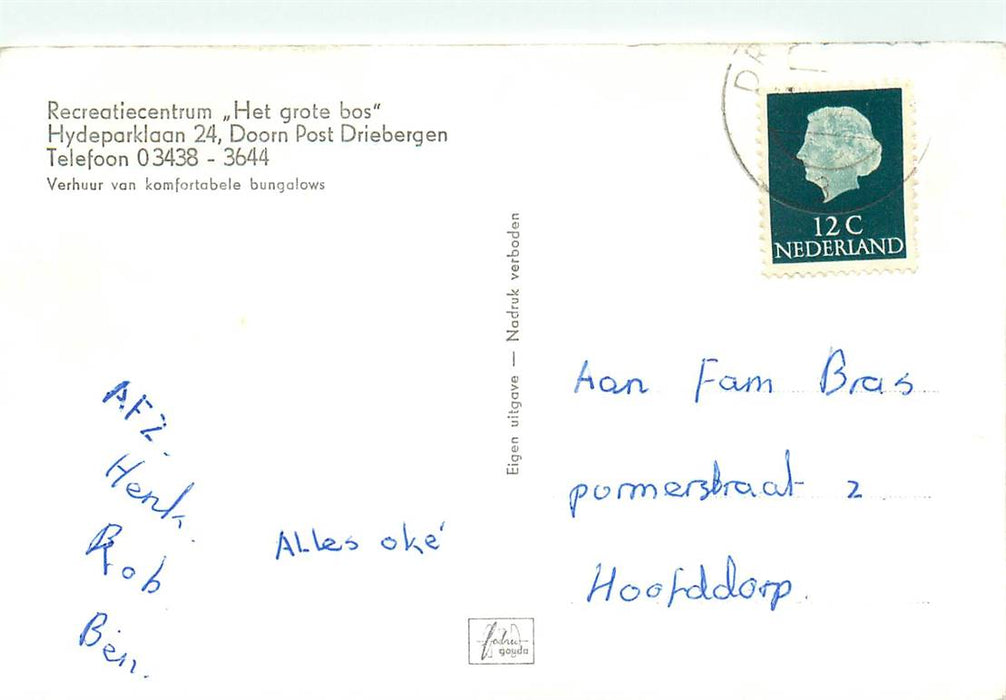 Recreatiecentrum „Het grote bos"
Hydeparklaan 24, Doorn Post Driebergen
Telefoon 03438 - 3644
Verhuur van komfortabele bungalows
AFZ.
Henk.
Rob
Ben.
Alles oké
Eigen uitgave — Nadruk verboden
gouda
DR
12 C
NEDERLAND
Aan Fam Bras
purmerstraat 2
Hoofddorp.